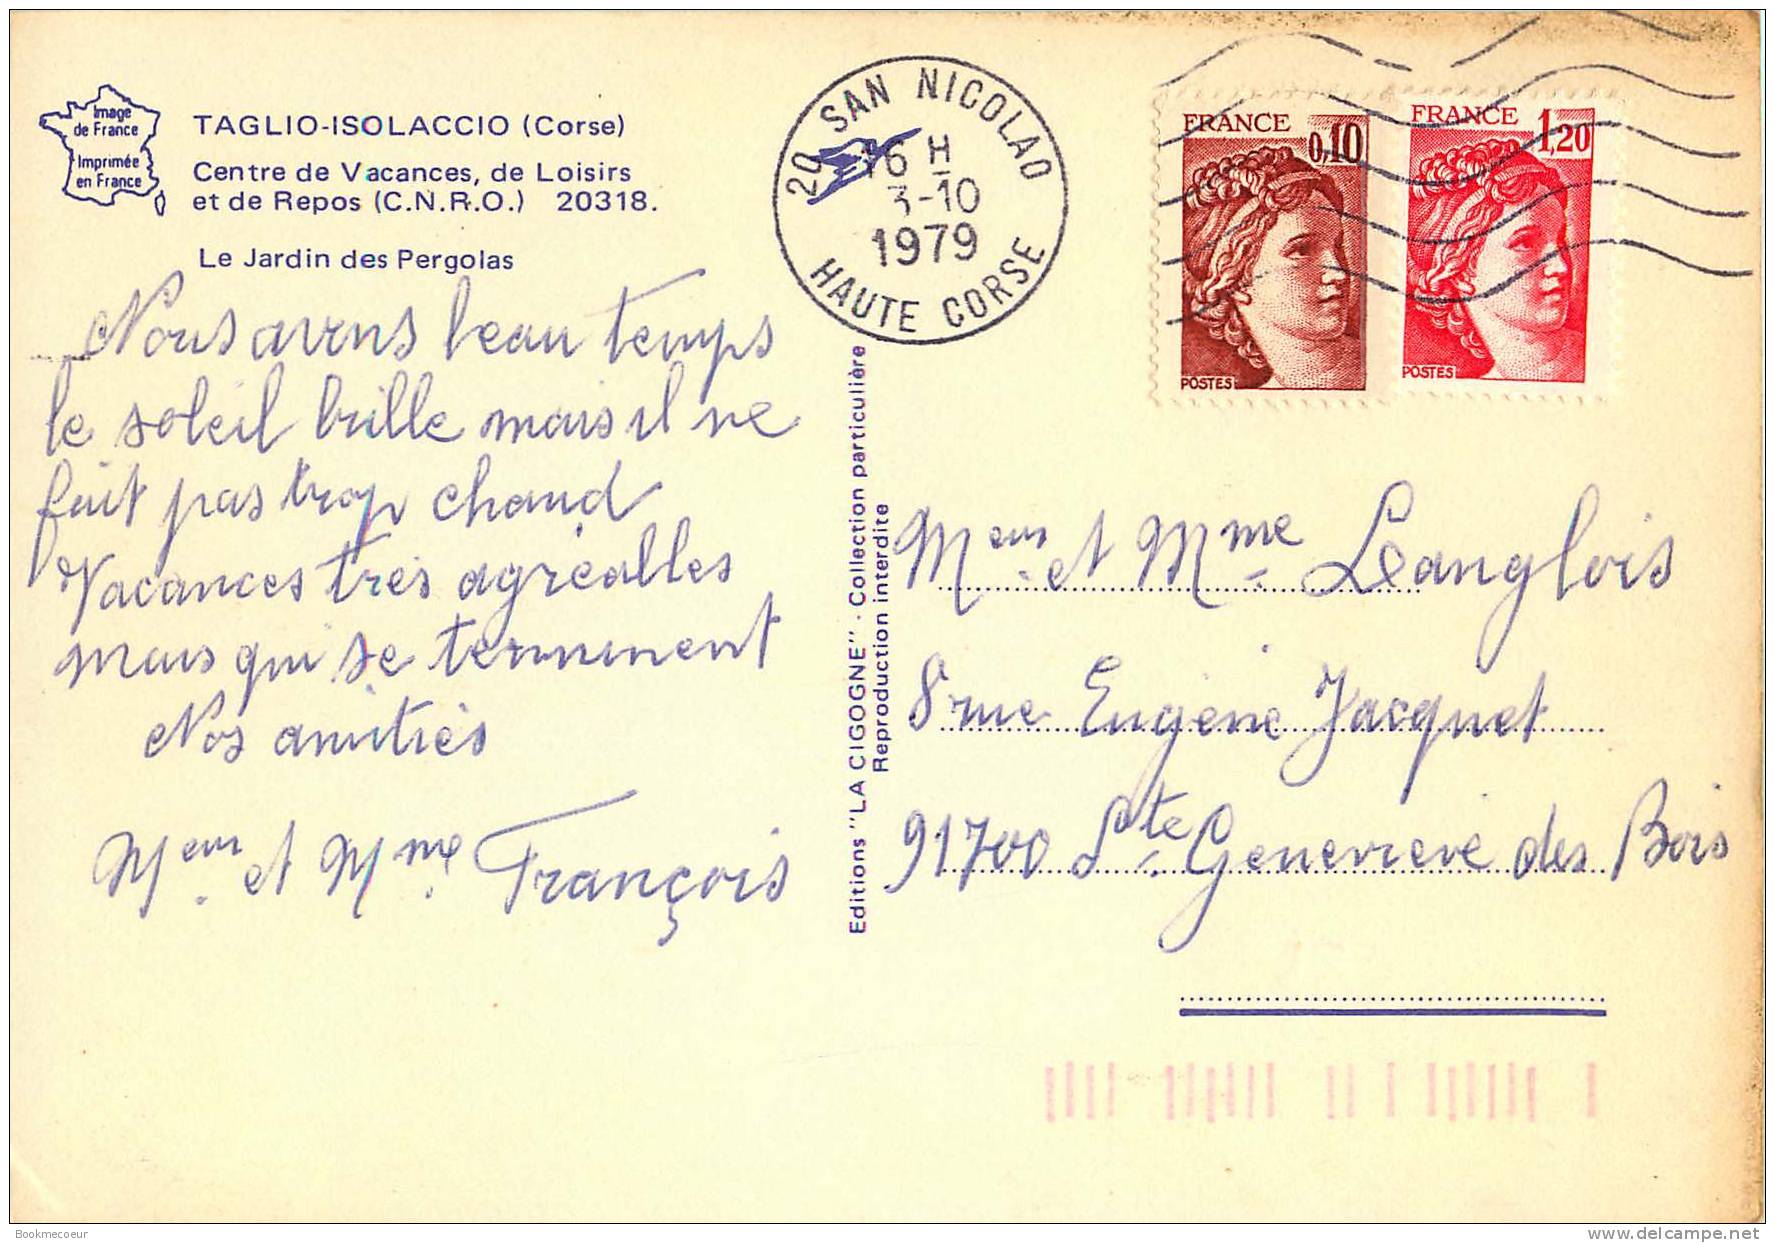 Image
de France
Imprimée
en France
TAGLIO-ISOLACCIO (Corse)
Centre de Vacances, de Loisirs
et de Repos (C.N.R.O.) 20318.
Le Jardin des Pergolas
Nous avons beau temps
le soleil brille mais il ne
fait pas trop chaud
Vacances très agréables
mais qui se terminent
Nos amitiés
Meur et Mme François
20 SAN NICOLAO
16 H
3-10
1979
HAUTE CORSE
FRANCE
0,10
POSTES
FRANCE
1,20
POSTES
Editions "LA CIGOGNE" - Collection particulière
Reproduction interdite
Meur et Mme Langlois
8 rue Eugène Jacquet
91700 Ste Geneviève des Bois
Bookmecoeur
delcampe.net